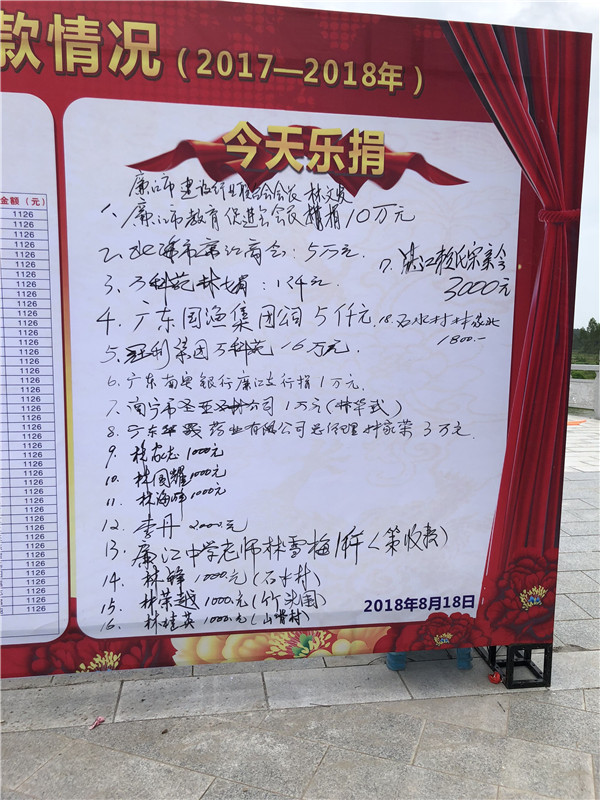 款情况（2017—2018年）
金额（元）
1126
1126
1126
1126
1126
1126
1126
1126
1126
1126
1126
1126
1126
1126
1126
1126
1126
1126
1126
1126
1126
1126
1126
1126
1126
1126
1126
1126
1126
1126
今天乐捐
廉江市建设行业联合会会长 林文
1、廉江市教育促进会会长 捐10万元
2、北海市廉江商会：5万元
3、万科苑林
4、广东国渔集团公司5仟元
5、胜利集团万科苑16万元
6、广东南粤银行廉江支行捐1万元
7、南宁市圣亚 公司1万元（林华式）
8、广东华 药业有限公司总经理林家荣3万元
9、林家志1000元
10、林国耀1000元
11、林海峰1000元
12、李丹2000元
13、廉江中学老师林雪梅1仟（策收款）
14、林锋1000元（石水村）
15、林荣越1000元（竹头围）
16、林桂英1000元（山背村）
17、湛江 氏宗亲会
3000元
18、石水村林家
1800.-
2018年8月18日